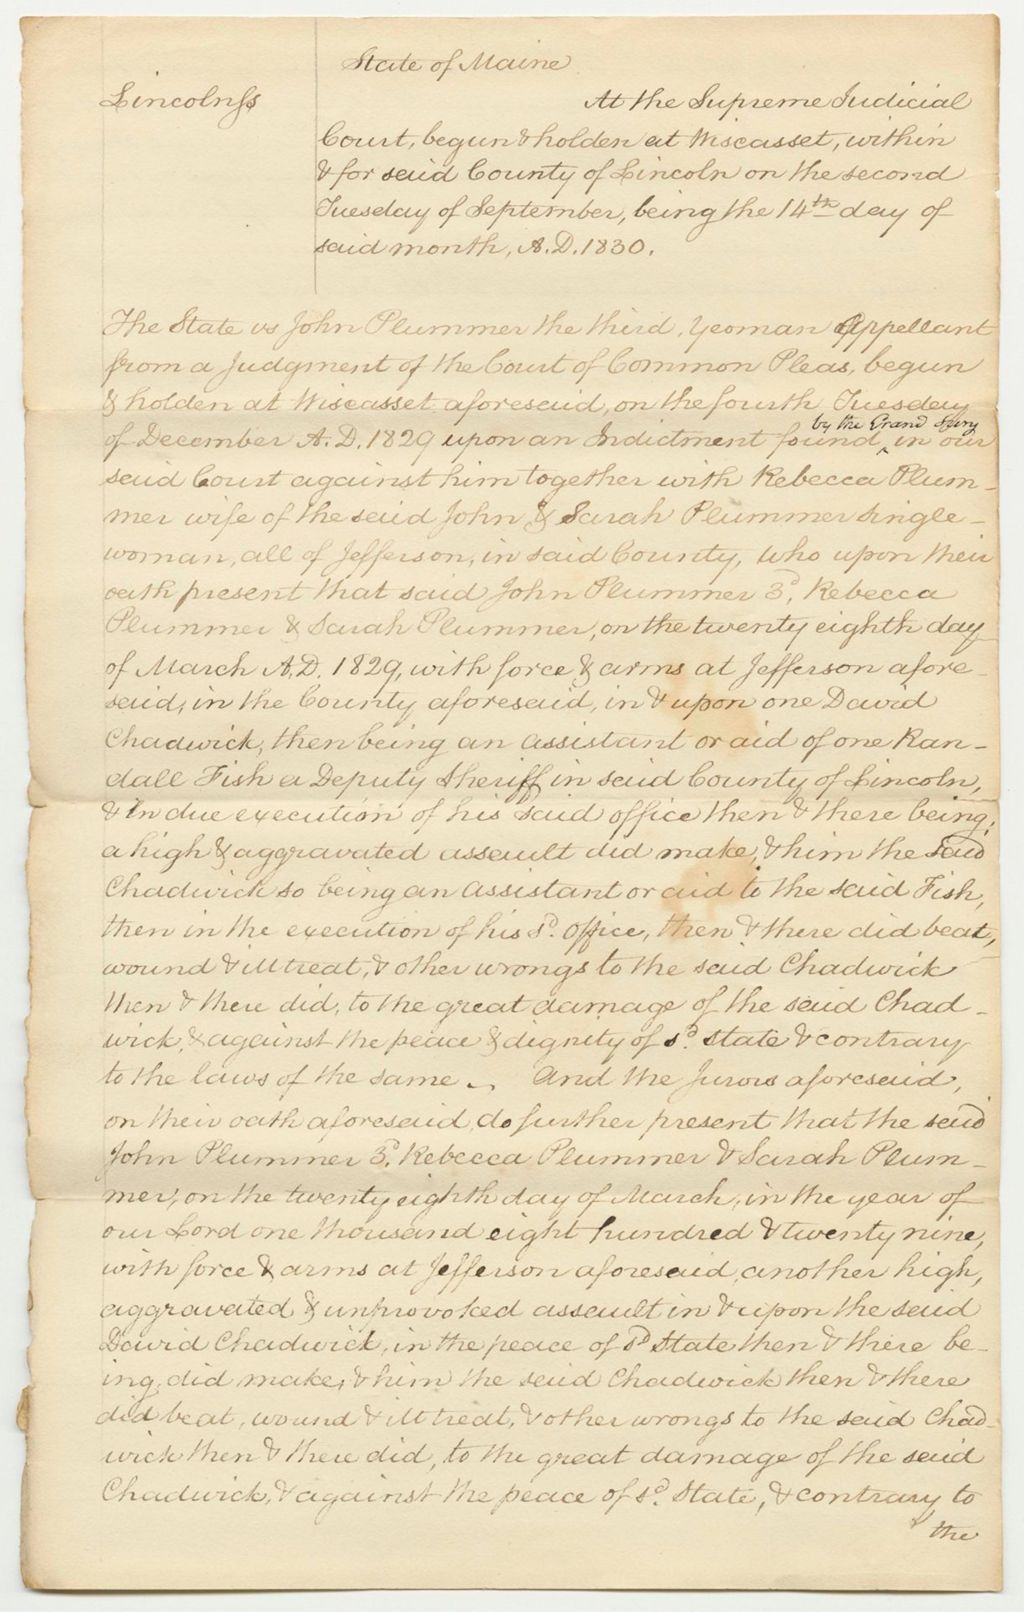 State of Maine
Lincoln ss
At the Supreme Judicial
Court, begun & holden at Wiscasset, within
& for said County of Lincoln on the second
Tuesday of September, being the 14th day of
said month, A.D. 1830.
The State vs John Plummer the third, Yeoman Appellant
from a Judgment of the Court of Common Pleas, begun
& holden at Wiscasset aforesaid, on the fourth Tuesday
by the Grand Jury
of December A.D. 1829 upon an Indictment found ^ in our
said Court against him together with Rebecca Plum-
mer wife of the said John & Sarah Plummer single-
woman, all of Jefferson, in said County, who upon their
oath present that said John Plummer 3d, Rebecca
Plummer & Sarah Plummer, on the twenty eighth day
of March A.D. 1829, with force & arms at Jefferson afore-
said, in the County aforesaid, in & upon one David
Chadwick, then being an assistant or aid of one Ran-
dall Fish a Deputy Sheriff in said County of Lincoln,
& in due execution of his said office then & there being,
a high & aggravated assault did make, & him the said
Chadwick so being an assistant or aid to the said Fish,
then in the execution of his sd. office, then & there did beat,
wound & illtreat, & other wrongs to the said Chadwick
then & there did, to the great damage of the said Chad-
wick, & against the peace & dignity of sd. State & contrary
to the laws of the same. And the Jurors aforesaid,
on their oath aforesaid, do further present that the said
John Plummer 3d. Rebecca Plummer & Sarah Plum-
mer, on the twenty eighth day of March, in the year of
our Lord one thousand eight hundred & twenty nine,
with force & arms at Jefferson aforesaid, another high,
aggravated & unprovoked assault in & upon the said
David Chadwick, in the peace of sd State then & there be-
ing, did make, & him the said Chadwick then & there
did beat, wound & illtreat, & other wrongs to the said Chad-
wick then & there did, to the great damage of the said
Chadwick, & against the peace of sd. State, & contrary to
the